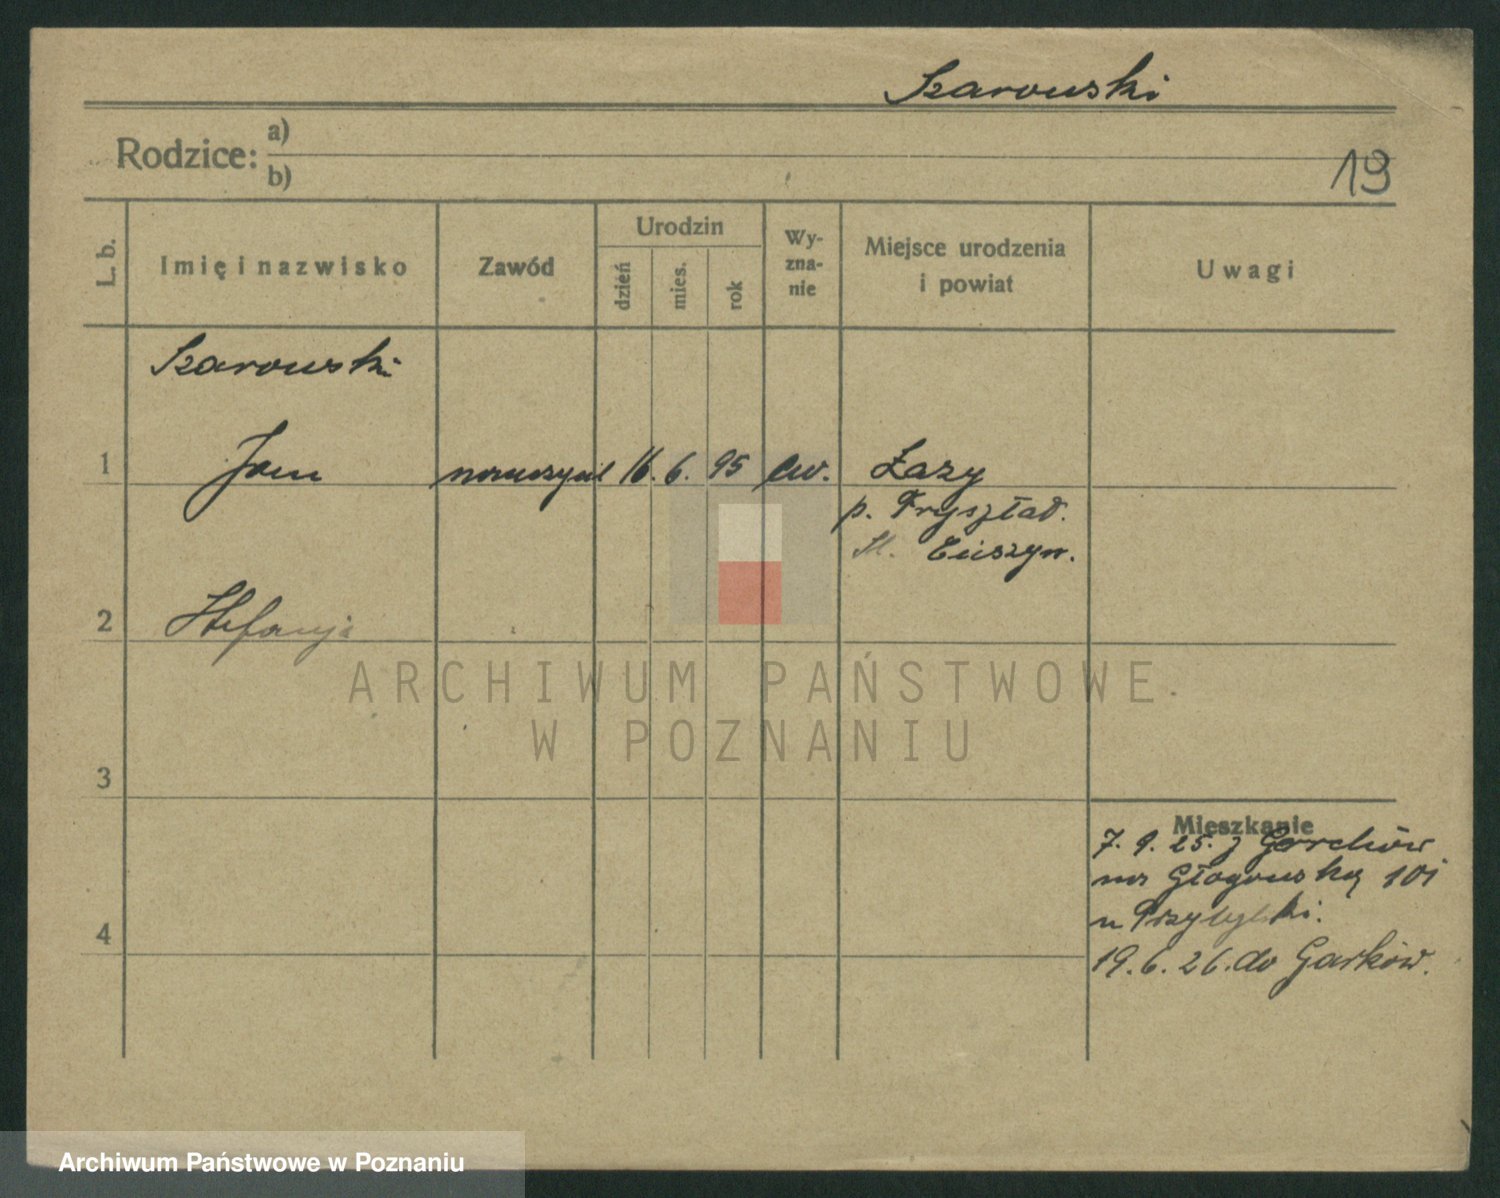 Szarowski
Rodzice: a)
b)
19
L. b.
Imię i nazwisko
Zawód
Urodzin
dzień
mies.
rok
Wy-
zna-
nie
Miejsce urodzenia
i powiat
Uwagi
Szarowski
1 Jan nauczyciel 16. 6. 95 ew. Łazy
p. Frysztad.
Śl. Cieszyn.
2 Stefanja
ARCHIWUM PAŃSTWOWE
W POZNANIU
3
Mieszkanie
7. 9. 25. z
na Głogowską 101
u Przybylski.
4
19. 6. 26. do
Archiwum Państwowe w Poznaniu